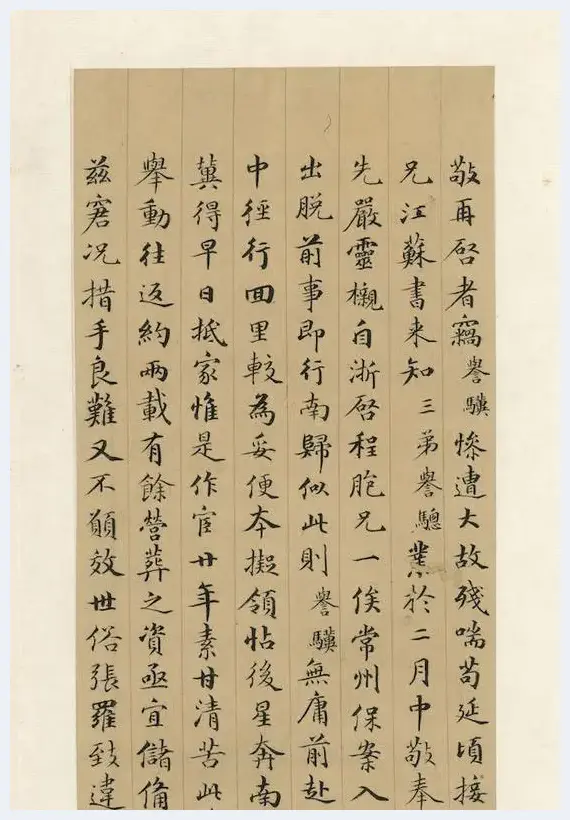 敬再啓者竊譽驥慘遭大故殘喘苟延頃接
兄江蘇書來知三弟譽驄業於二月中敬奉
先嚴靈櫬自浙啓程胞兄一俟常州保案入
出脫前事即行南歸似此則譽驥無庸前赴
中徑行回里較為妥便本擬領帖後星奔南
冀得早日抵家惟是作宦廿年素甘清苦此
舉動往返約兩載有餘營葬之資亟宜儲備
茲窘况措手良難又不願效世俗張羅致違